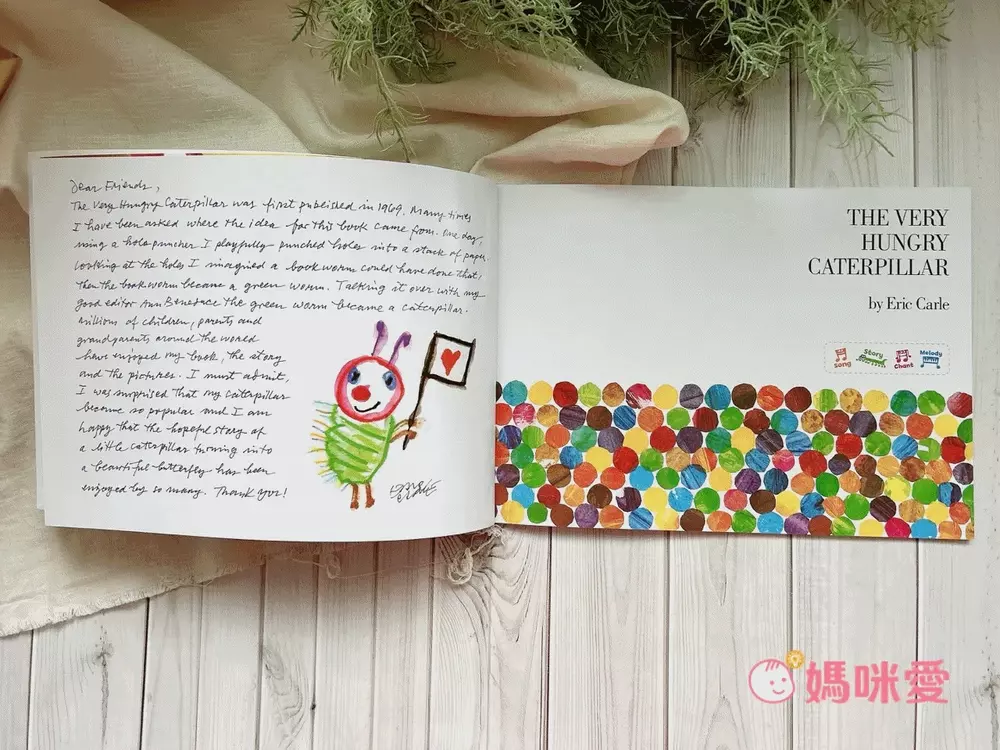 Dear Friends,
The Very Hungry Caterpillar was first published in 1969. Many times
I have been asked where the idea for this book came from. One day,
using a hole puncher I playfully punched holes into a stack of paper.
Looking at the holes I imagined a book worm could have done that,
Then the book worm became a green worm. Talking it over with my
good editor Ann Beneduce the green worm became a caterpillar.
Millions of children, parents and
grandparents around the world
have enjoyed my book, the story
and the pictures. I must admit,
I was surprised that my caterpillar
became so popular and I am
happy that the hopeful story of
a little caterpillar turning into
a beautiful butterfly has been
enjoyed by so many. Thank you!
Eric Carle
THE VERY
HUNGRY
CATERPILLAR
by Eric Carle
Song
Story
Chant
Melody
媽咪愛